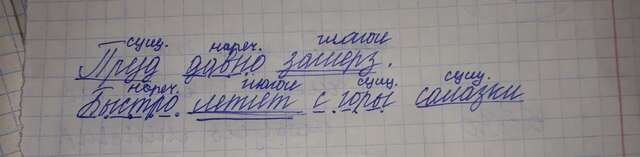 сущ. нареч. глагол
Пруд давно замерз.
нареч. глагол сущ. сущ.
Быстро летят с горы салазки